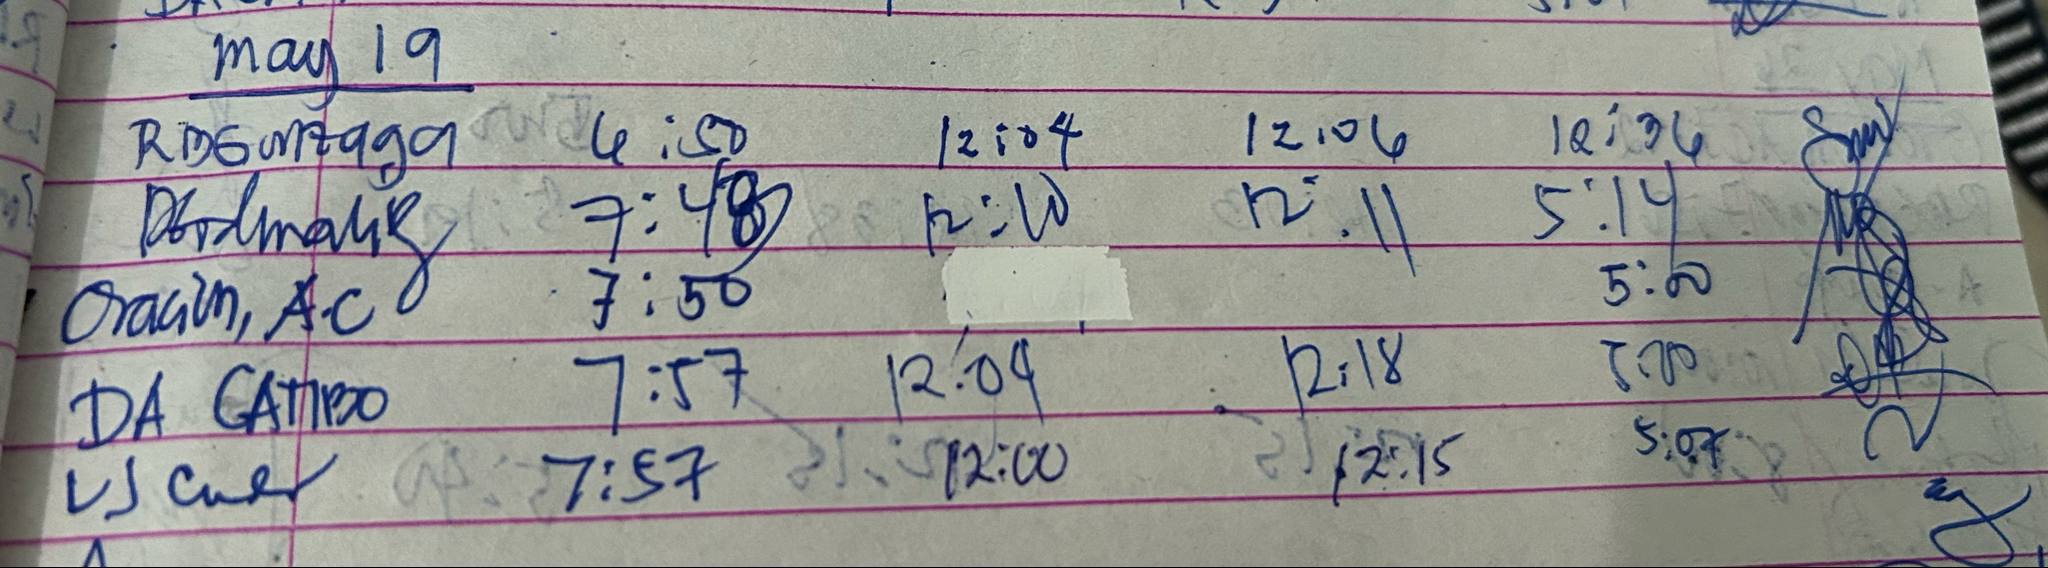 May 19
RBGonzaga 6:50 12:04 12:06 12:36
7:48 12:10 12:11 5:14
Oracion, A.C 7:50 5:00
DA GATIBO 7:57 12:04 12:18 5:00
7:57 12:00 12:15 5:07